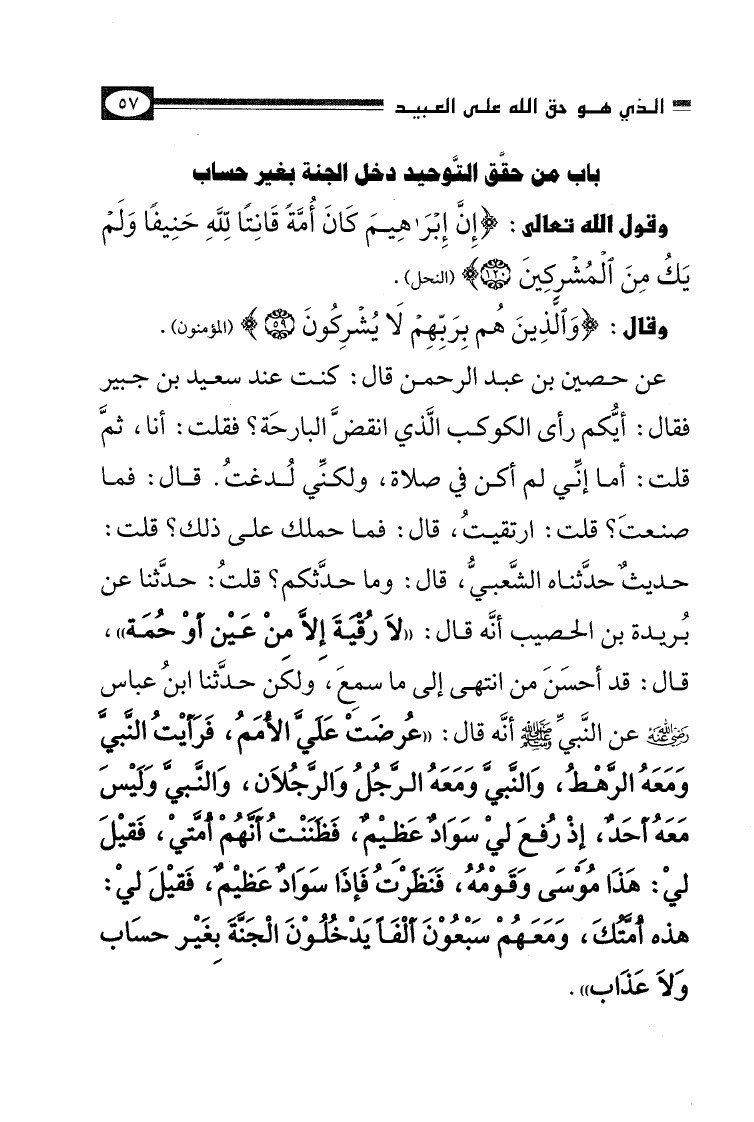 الـذي هـو حق الله على العبيـد ٥٧
باب من حقَّق التَّوحيد دخل الجنة بغير حساب
وقول الله تعالى: ﴿إِنَّ إِبْرَٰهِيمَ كَانَ أُمَّةً قَانِتًا لِّلَّهِ حَنِيفًا وَلَمْ
يَكُ مِنَ ٱلْمُشْرِكِينَ ١٢٠﴾ (النحل).
وقال: ﴿وَٱلَّذِينَ هُم بِرَبِّهِمْ لَا يُشْرِكُونَ ٥٩﴾ (المؤمنون).
عن حصين بن عبد الرحمن قال: كنت عند سعيد بن جبير
فقال: أيُّكم رأى الكوكب الَّذي انقضَّ البارحَة؟ فقلت: أنا، ثمَّ
قلت: أما إنِّي لم أكن في صلاة، ولكنِّي لُدغتُ. قال: فما
صنعتَ؟ قلت: ارتقيتُ، قال: فما حملك على ذلك؟ قلت:
حديثٌ حدَّثناه الشَّعبيُّ، قال: وما حدَّثكم؟ قلتُ: حدَّثنا عن
بُريدة بن الحصيب أنَّه قال: «لاَ رُقْيَةَ إِلاَّ مِنْ عَيْنٍ أَوْ حُمَةٍ»،
قال: قد أحسَنَ من انتهى إلى ما سمعَ، ولكن حدَّثنا ابنُ عباس
رضي الله عنه عن النَّبيِّ ﷺ أنَّه قال: «عُرِضَتْ عَلَيَّ الأُمَمُ، فَرَأَيْتُ النَّبِيَّ
وَمَعَهُ الرَّهْطُ، وَالنَّبِيَّ وَمَعَهُ الرَّجُلُ وَالرَّجُلاَنِ، وَالنَّبِيَّ وَلَيْسَ
مَعَهُ أَحَدٌ، إِذْ رُفِعَ لِيْ سَوَادٌ عَظِيْمٌ، فَظَنَنْتُ أَنَّهُمْ أُمَّتِيْ، فَقِيْلَ
لِيْ: هَذَا مُوْسَى وَقَوْمُهُ، فَنَظَرْتُ فَإِذَا سَوَادٌ عَظِيْمٌ، فَقِيْلَ لِيْ:
هذه أُمَّتُكَ، وَمَعَهُمْ سَبْعُوْنَ أَلْفَاً يَدْخُلُوْنَ الْجَنَّةَ بِغَيْرِ حسَابٍ
وَلاَ عَذَابٍ».